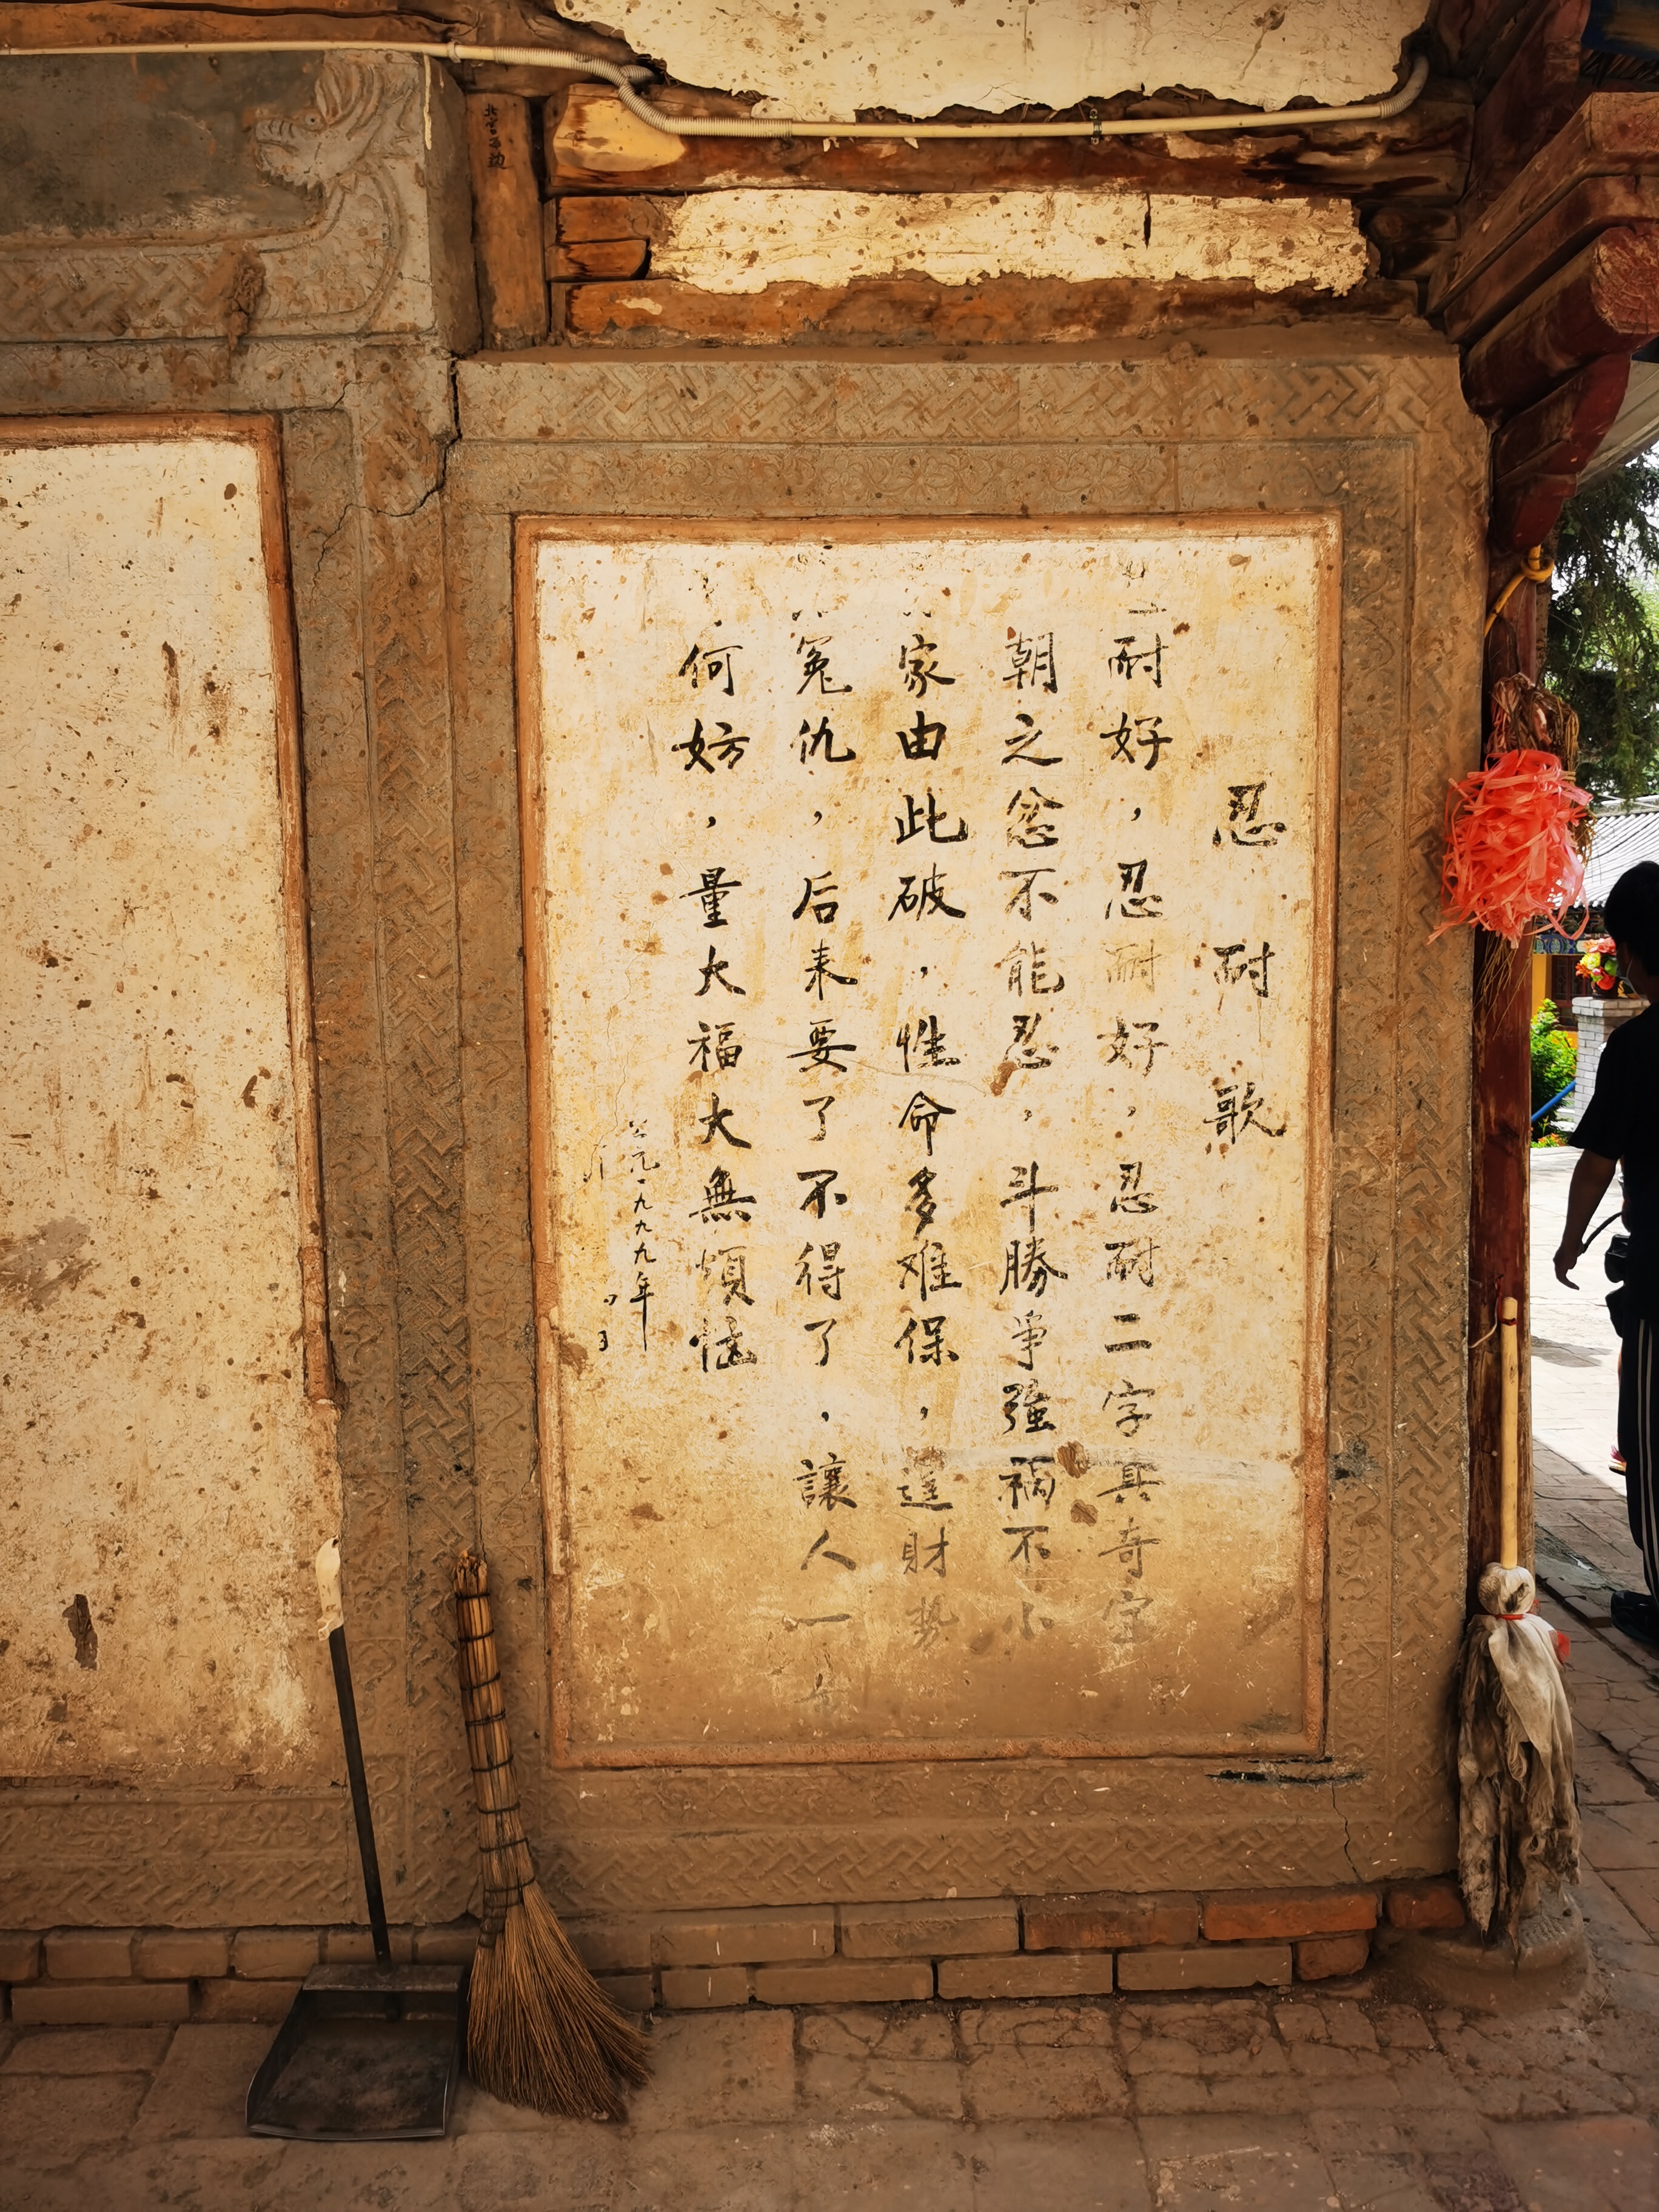 忍耐歌
耐好，忍耐好，忍耐二字真奇宝
朝之忿不能忍，斗勝爭強禍不小
家由此破，性命多难保，逞財势
冤仇，后来要了不得了，讓人一
何妨，量大福大無煩恼
公元一九九九年